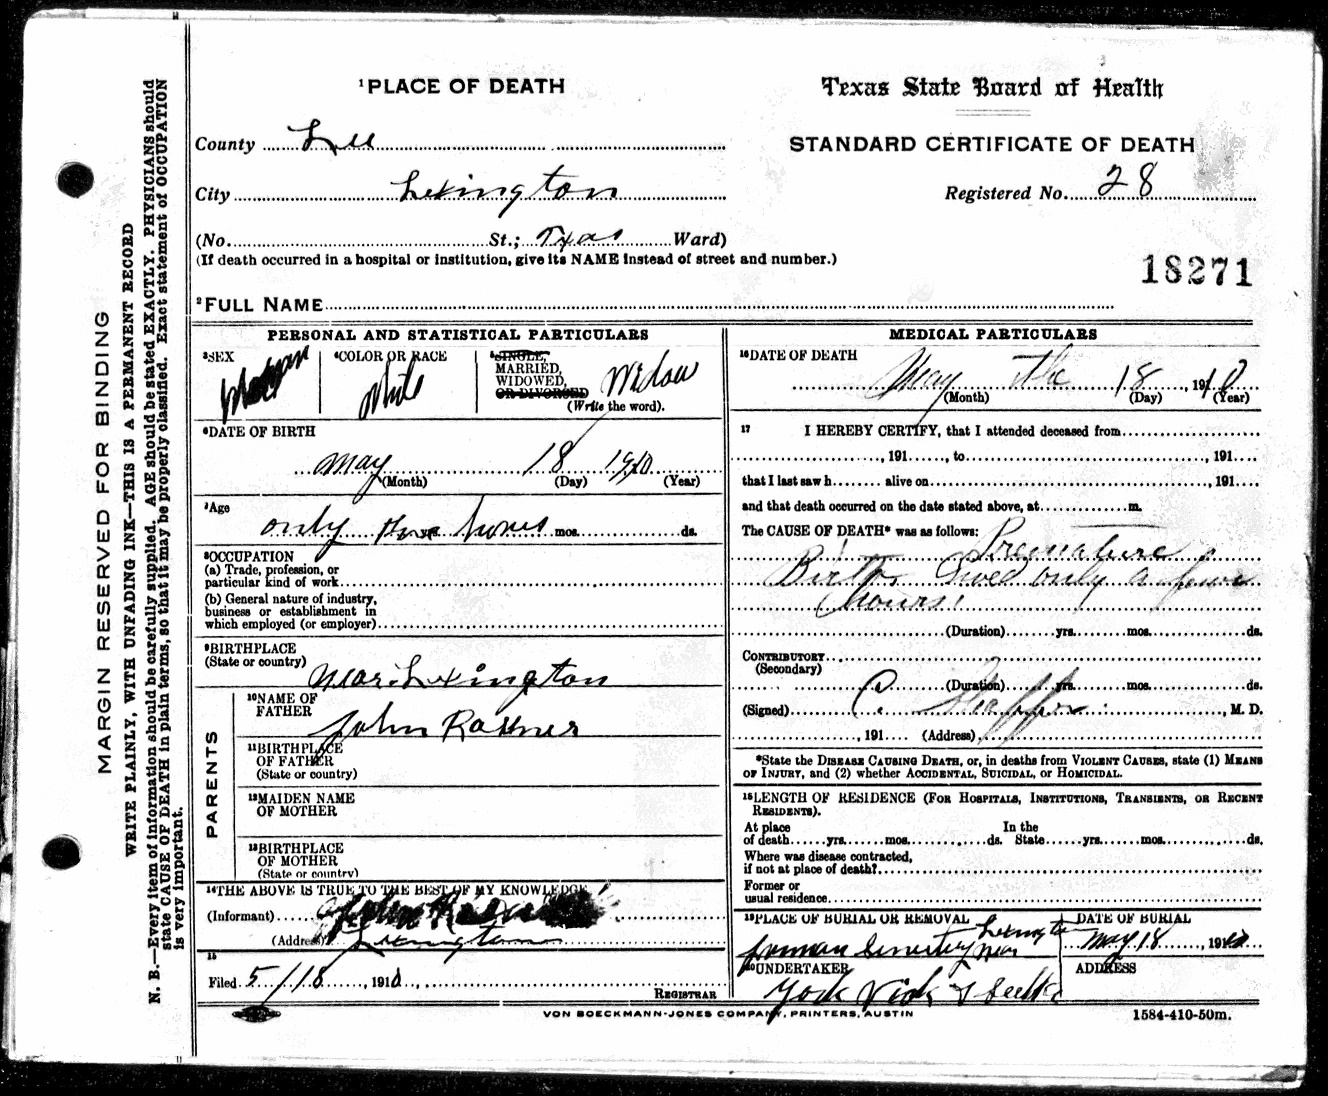 MARGIN RESERVED FOR BINDING
WRITE PLAINLY, WITH UNFADING INK—THIS IS A PERMANENT RECORD
N. B.—Every item of information should be carefully supplied. AGE should be stated EXACTLY. PHYSICIANS should
state CAUSE OF DEATH in plain terms, so that it may be properly classified. Exact statement of OCCUPATION
is very important.
¹PLACE OF DEATH
Texas State Board of Health
STANDARD CERTIFICATE OF DEATH
County Lee
City Lexington
Registered No. 28
(No. St.; Texas Ward)
(If death occurred in a hospital or institution, give its NAME instead of street and number.)
18271
²FULL NAME
PERSONAL AND STATISTICAL PARTICULARS
³SEX
⁴COLOR OR RACE
White
⁵SINGLE,
MARRIED,
WIDOWED,
OR DIVORCED
(Write the word).
Widow
⁶DATE OF BIRTH
May 18 1910
(Month) (Day) (Year)
⁷Age
only hours mos. ds.
⁸OCCUPATION
(a) Trade, profession, or
particular kind of work
(b) General nature of industry,
business or establishment in
which employed (or employer)
⁹BIRTHPLACE
(State or country)
near Lexington
PARENTS
¹⁰NAME OF
FATHER
John
¹¹BIRTHPLACE
OF FATHER
(State or country)
¹²MAIDEN NAME
OF MOTHER
¹³BIRTHPLACE
OF MOTHER
(State or country)
¹⁴THE ABOVE IS TRUE TO THE BEST OF MY KNOWLEDGE
(Informant) John
(Address) Lexington
¹⁵
Filed 5/18, 1910,
REGISTRAR
MEDICAL PARTICULARS
¹⁶DATE OF DEATH
May the 18, 1910
(Month) (Day) (Year)
¹⁷ I HEREBY CERTIFY, that I attended deceased from
, 191 , to , 191
that I last saw h alive on , 191
and that death occurred on the date stated above, at m.
The CAUSE OF DEATH* was as follows:
Premature
Birth. lived only a few
hours!
(Duration) yrs. mos. ds.
CONTRIBUTORY
(Secondary)
(Duration) yrs. mos. ds.
(Signed) C. , M. D.
, 191 (Address)
*State the DISEASE CAUSING DEATH, or, in deaths from VIOLENT CAUSES, state (1) MEANS
OF INJURY, and (2) whether ACCIDENTAL, SUICIDAL, or HOMICIDAL.
¹⁸LENGTH OF RESIDENCE (FOR HOSPITALS, INSTITUTIONS, TRANSIENTS, OR RECENT
RESIDENTS).
At place In the
of death yrs. mos. ds. State yrs. mos. ds.
Where was disease contracted,
if not at place of death?
Former or
usual residence
¹⁹PLACE OF BURIAL OR REMOVAL
near
DATE OF BURIAL
May 18, 1910
²⁰UNDERTAKER
ADDRESS
VON BOECKMANN-JONES COMPANY, PRINTERS, AUSTIN
1584-410-50m.